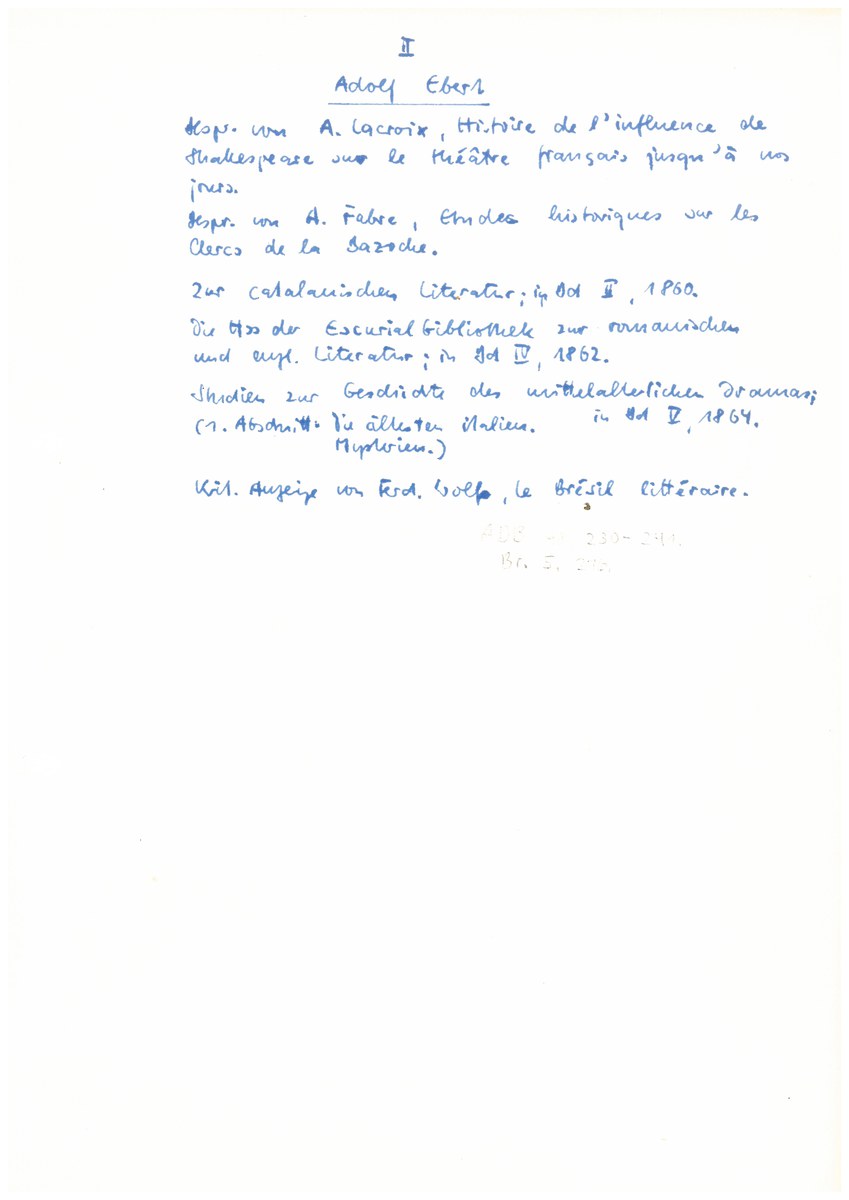 II
Adolf Ebert
Bespr. von A. Lacroix, Histoire de l'influence de
Shakespeare sur le théâtre français jusqu'à nos
jours.
Bespr. von A. Fabre, Etudes historiques sur les
Clercs de la Bazoche.
Zur catalanischen Literatur; in Bd II, 1860.
Die Hss der Escurialbibliothek zur romanischen
und engl. Literatur; in Bd IV, 1862.
Studien zur Geschichte des mittelalterlichen Dramas;
(1. Abschnitt: Die ältesten italien. in Bd V, 1864.
Mysterien.)
Krit. Anzeige von Ferd. Wolf, le Brésil littéraire.
ADB 230-241.
Br. 5. 243.